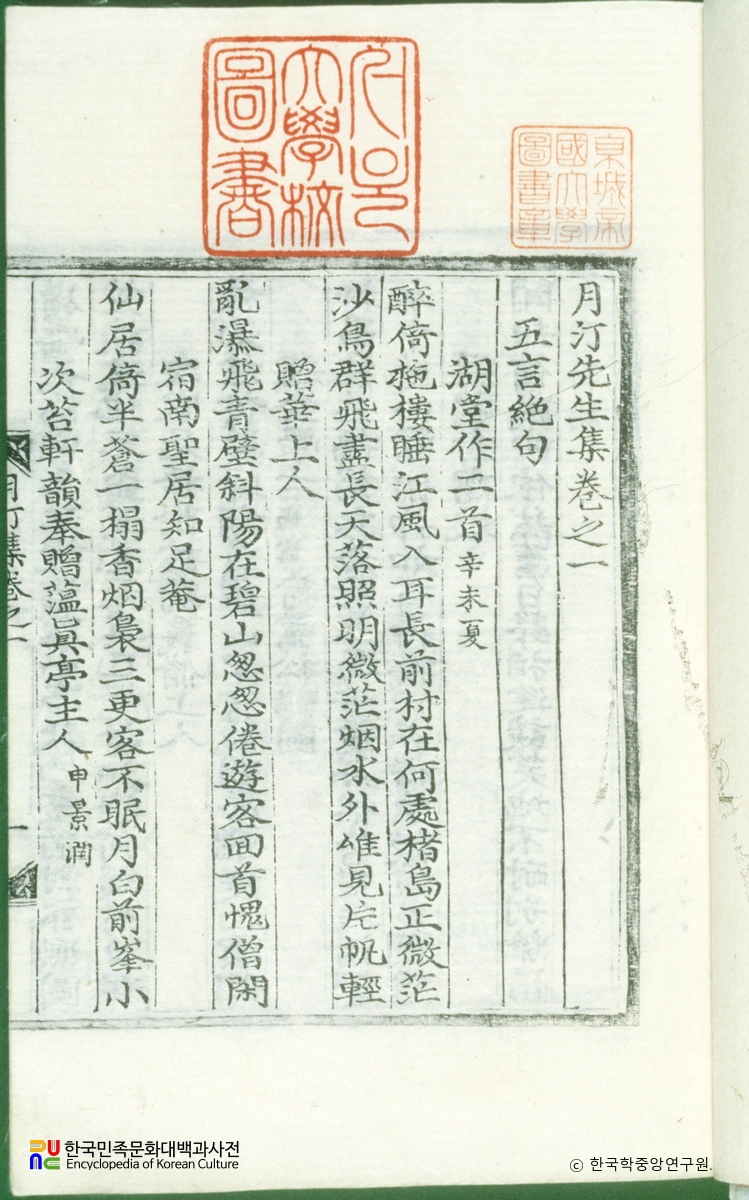 月汀先生集卷之一
五言絶句
湖堂作二首 辛未夏
醉倚柂樓睡江風入耳長前村在何處楮島正微茫
沙鳥群飛盡長天落照明微茫烟水外唯見片帆輕
贈華上人
亂瀑飛青壁斜陽在碧山怱怱倦遊客回首愧僧閑
宿南聖居知足菴
仙居倚半蒼一榻香烟裊三更客不眠月白前峯小
次苔軒韻奉贈薀眞亭主人 申景潤
月汀集卷之一
一
서울
大學校
圖書
京城帝
國大學
圖書章
한국민족문화대백과사전
Encyclopedia of Korean Culture
ⓒ 한국학중앙연구원.